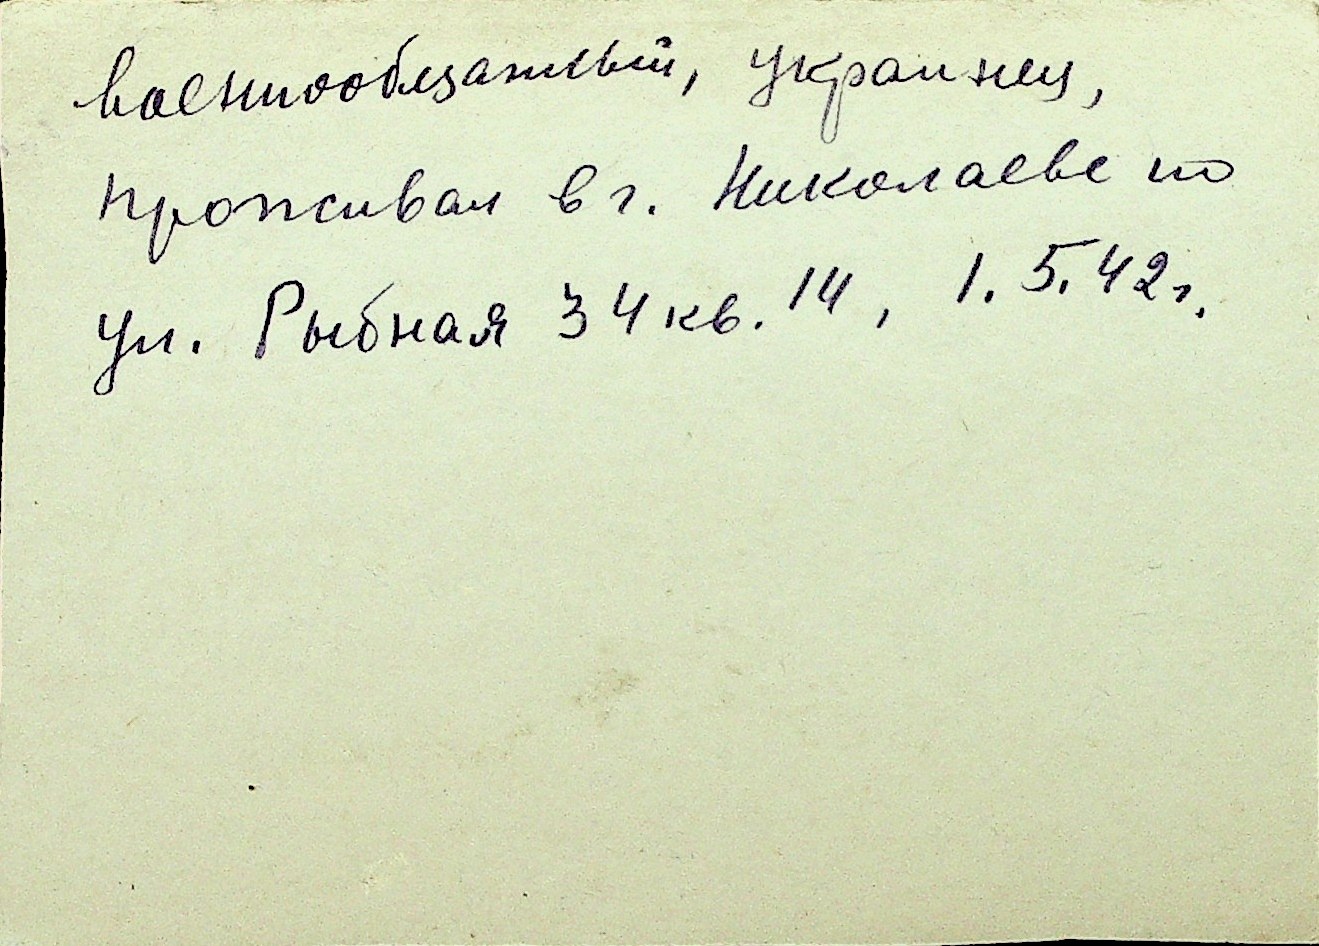 военнообязанный, украинец,
проживал в г. Николаеве по
ул. Рыбная 34 кв. 14, 1.5.42г.